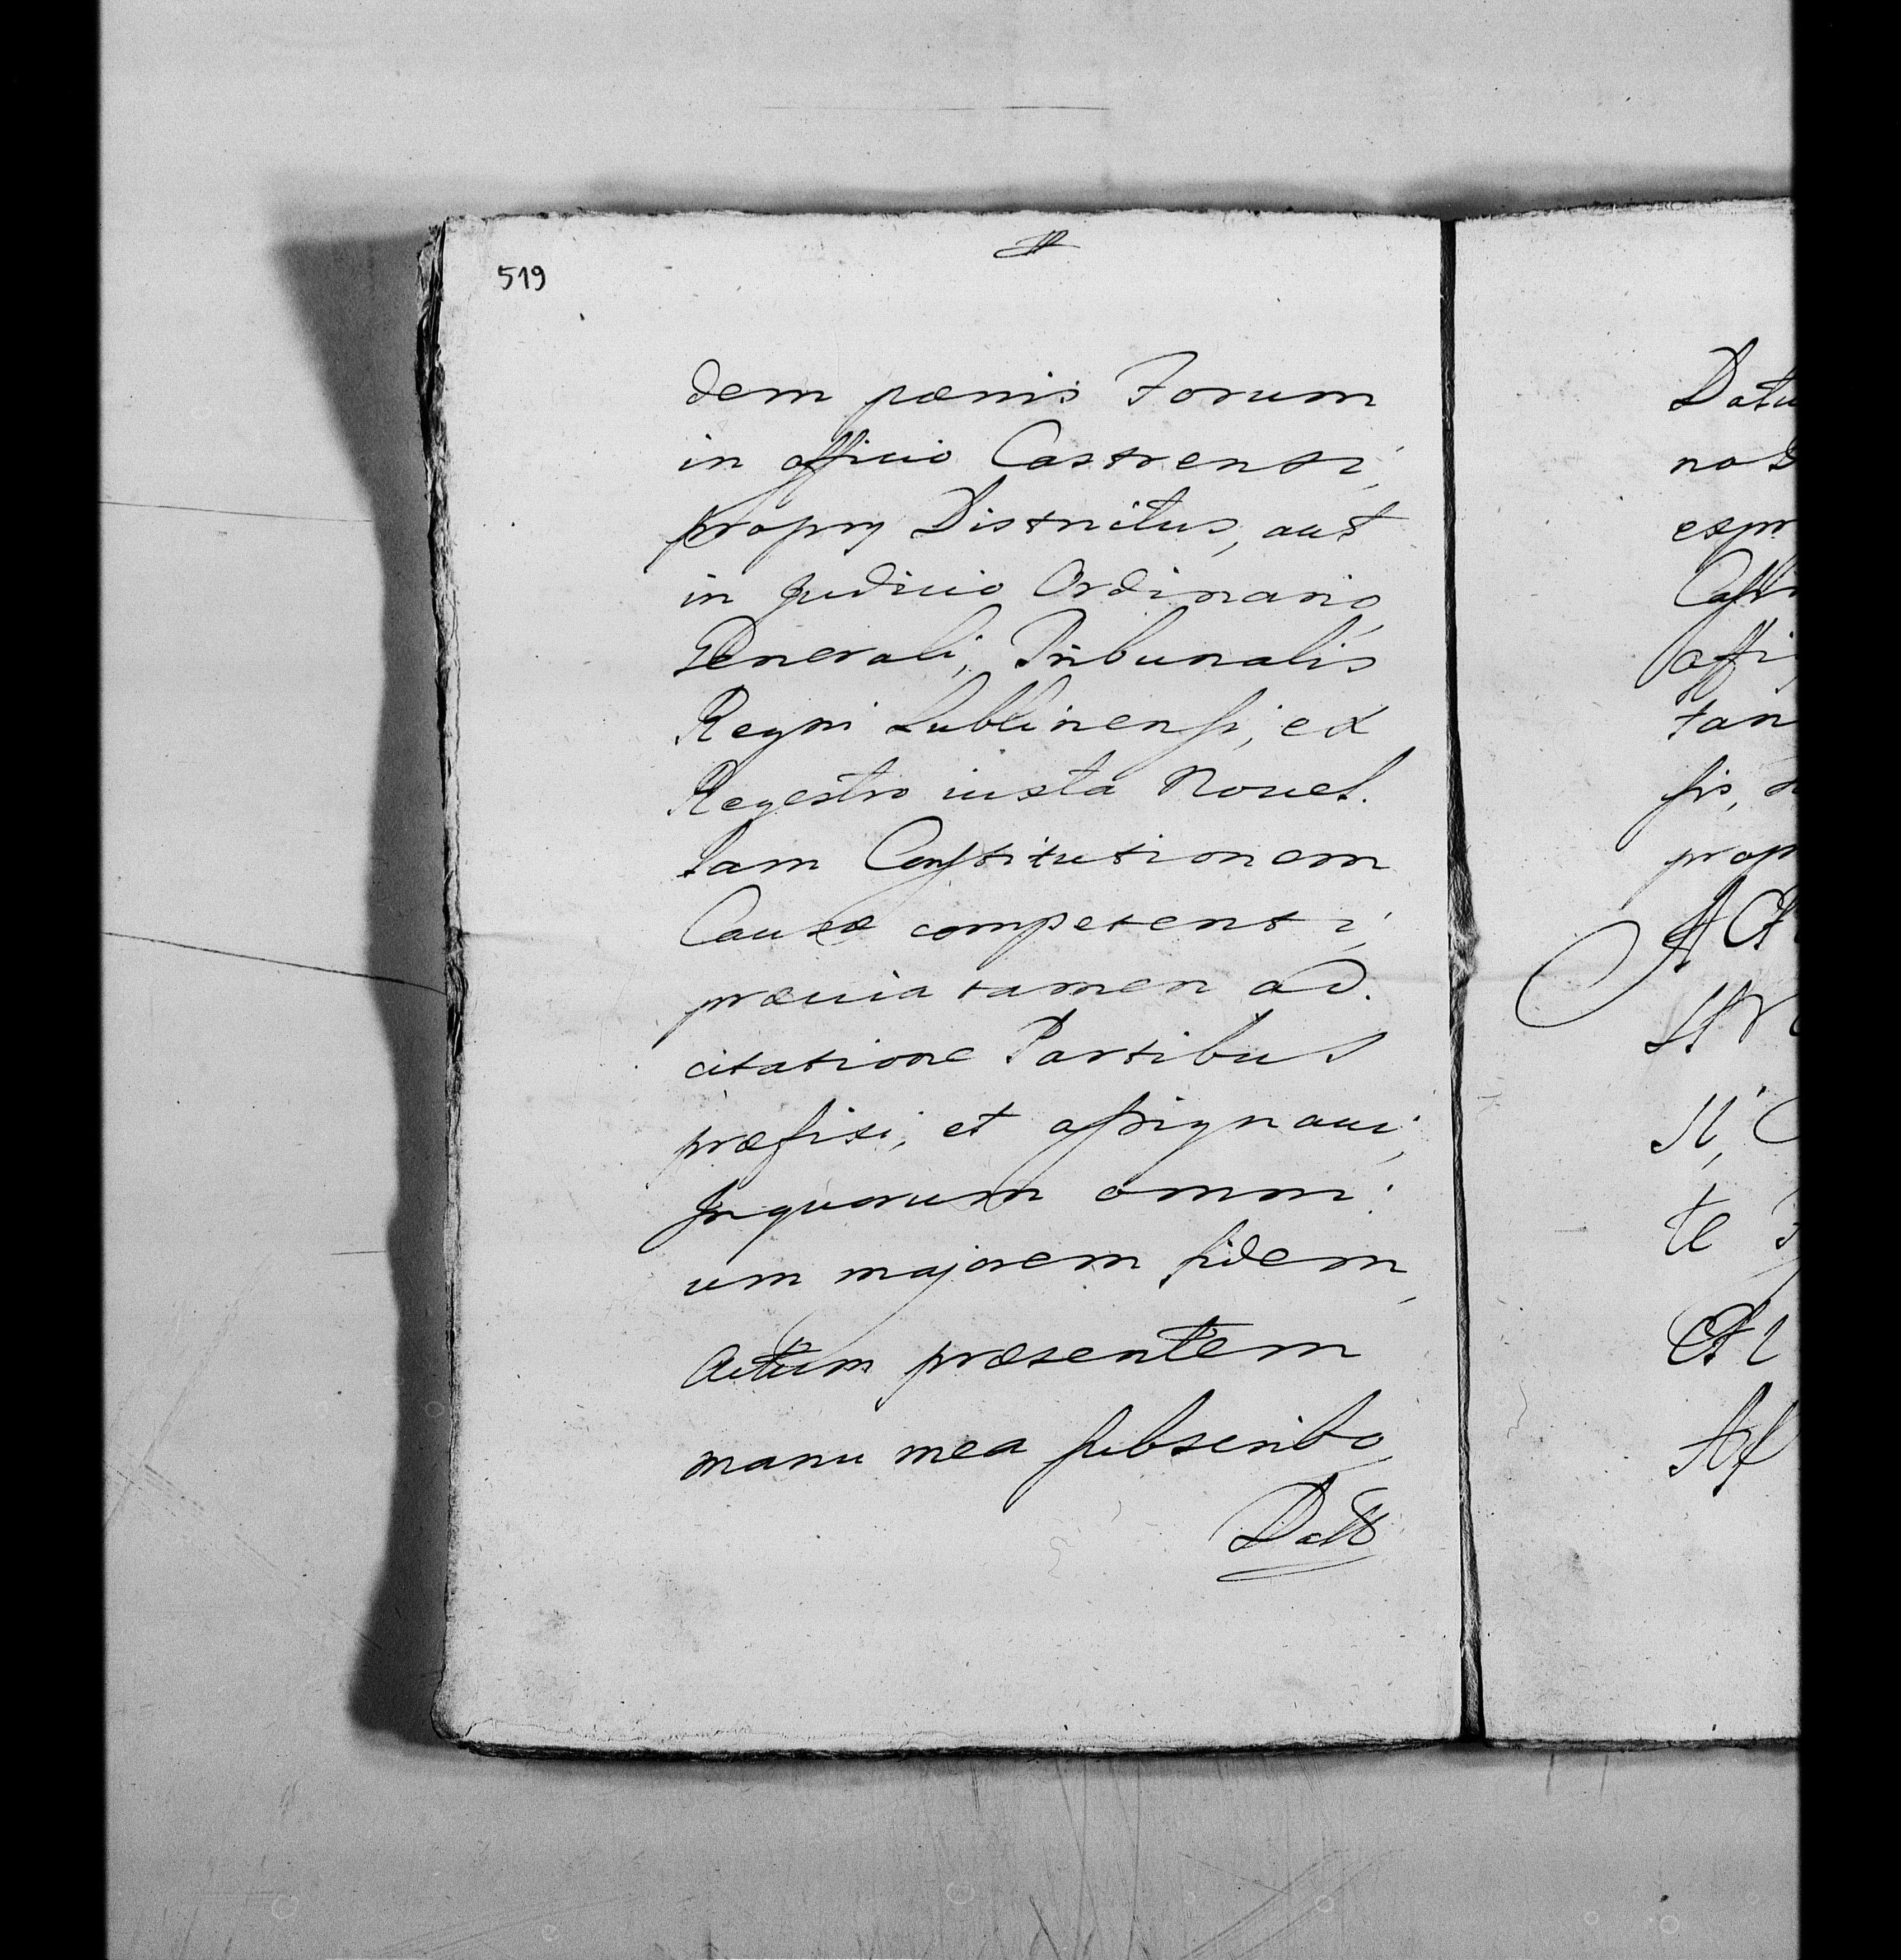 519
dem pœnis Forum
in officio Castrensi,
proprÿ Districtus, aut
in Judicio Ordinario
Generali, Tribunalis
Regni Lublinensi, ex
Regestro iuxta Novel.
lam Constitutionem
Causæ competenti,
prævia tamen ad.
citatione Partibus
præfixi, et assignavi,
In quorum omni.
um majorem fidem,
Actum præsentem
manu mea subscribo
Datt
Datu
no
expr
Cast
offi
tan
sis,
prop
te